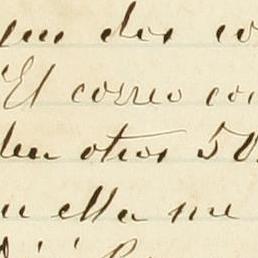 dos co
El correo co
otros 50
ella me